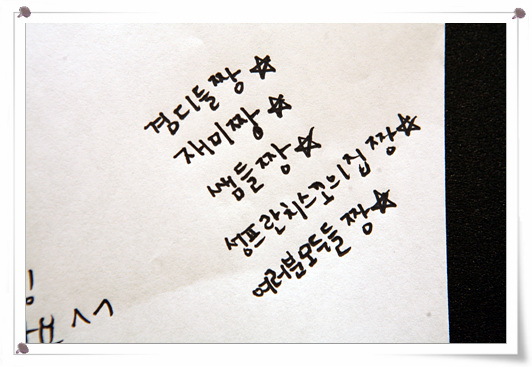 경디들짱☆
재미짱☆
쌤들짱☆
성프란치스꼬의집 짱☆
여러분모두들 짱☆
^^